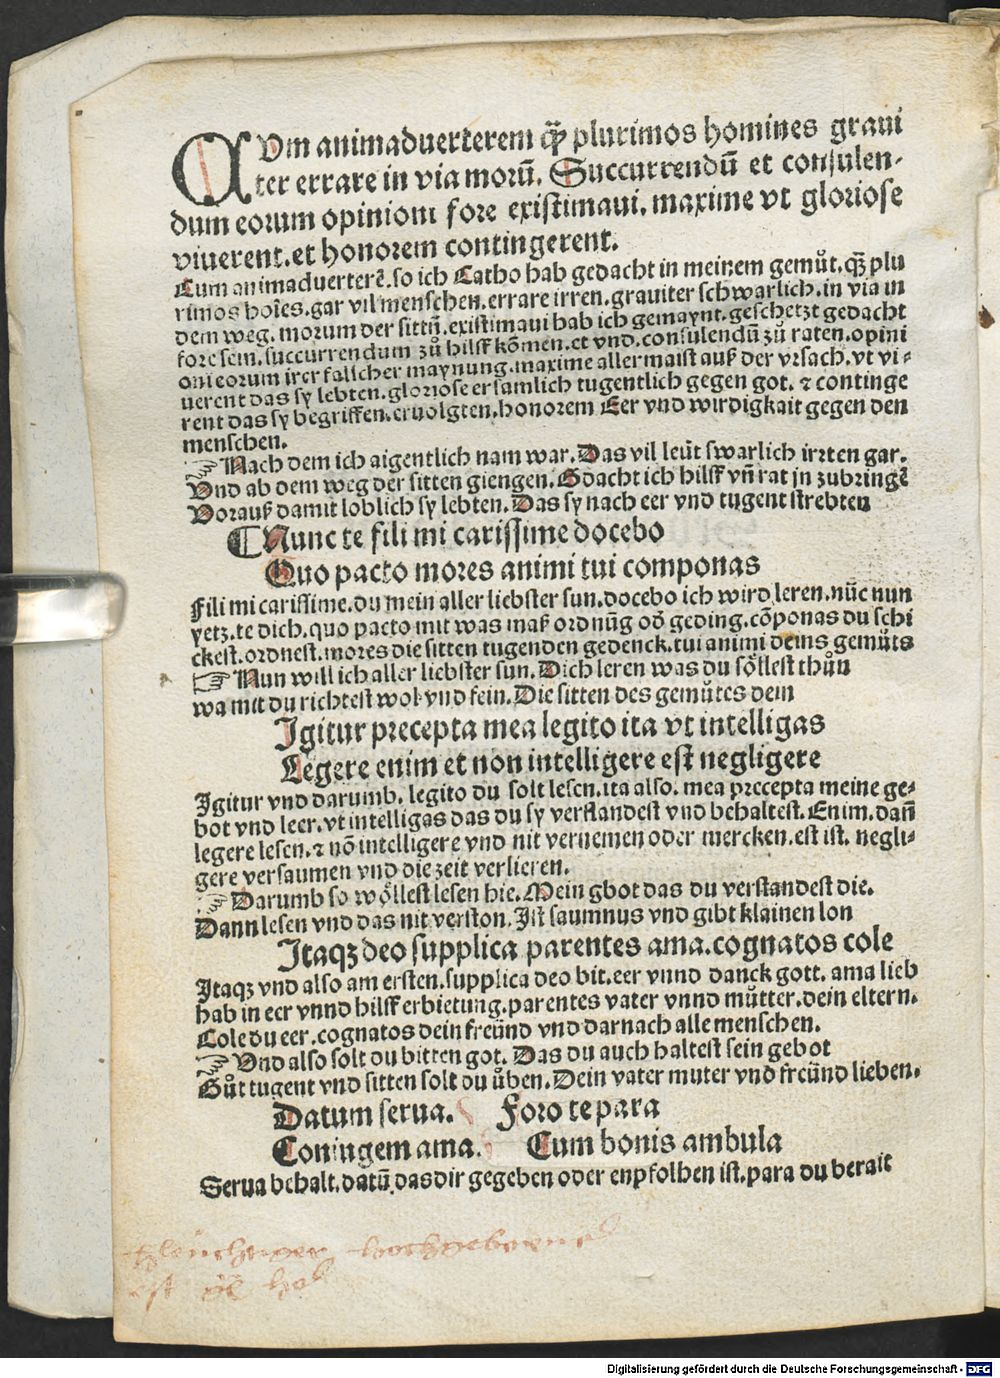 CVm animaduerterem q̈ꝫ plurimos homines graui
ter errare in via morũ. Succurrendũ et consulen-
dum eorum opinioni fore existimaui. maxime vt gloriose
viuerent. et honorem contingerent.
Cum animaduerterẽ. so ich Catho hab gedacht in meinem gemůt. q̈ꝫ plu
rimos hoı̃es. gar vil menschen. errare irren. grauiter schwarlich. in via in
dem weg. morum der sittñ. existimaui hab ich gemaynt. geschetzt gedacht
fore sein. succurrendum zů hilff kõmen. et vnd. consulendũ zů raten. opini
oni eorum irer falscher maynung. maxime aller maist auß der vrsach. vt vi-
uerent das sy lebten. gloriose ersamlich tugentlich gegen got. ⁊ continge
rent das sy begriffen. eruolgten. honorem Eer vnd wirdigkait gegen den
menschen.
☞ Nach dem ich aigentlich nam war. Das vil leüt swarlich irrten gar.
Vnd ab dem weg der sitten giengen. Gdacht ich hilff vñ rat in zubringẽ
Vorauß damit loblich sy lebten. Das sy nach eer vnd tugent strebten
⸿ Nunc te fili mi carissime docebo
Quo pacto mores animi tui componas
Fili mi carissime. du mein aller liebster sun. docebo ich wird leren. nũc nun
yetz. te dich. quo pacto mit was maß ordnũg od̃ geding. cõponas du schi
ckest. ordnest. mores die sitten tugenden gedenck. tui animi deins gemůts
☞ Nun will ich aller liebster sun. Dich leren was du söllest thůn
wa mit du richtest wol vnd fein. Die sitten des gemůtes dein
Igitur precepta mea legito ita vt intelligas
Legere enim et non intelligere est negligere
Igitur vnd darumb. legito du solt lesen. ita also. mea precepta meine ge-
bot vnd leer. vt intelligas das du sy verstandest vnd behaltest. Enim. dañ
legere lesen. ⁊ nõ intelligere vnd nit vernemen oder mercken. est ist. negli-
gere versaumen vnd die zeit verlieren.
☞ Darumb so wöllest lesen hie. Mein gbot das du verstandest die.
Dann lesen vnd das nit verston. Ist saumnus vnd gibt klainen lon
Itaqꝫ deo supplica parentes ama. cognatos cole
Itaqꝫ vnd also am ersten. supplica deo bit. eer vnnd danck gott. ama lieb
hab in eer vnnd hilff erbietung. parentes vater vnnd můtter. dein eltern.
Cole du eer. cognatos dein freünd vnd darnach alle menschen.
☞ Vnd also solt du bitten got. Das du auch haltest sein gebot
Gůt tugent vnd sitten solt du üben. Dein vater muter vnd freünd lieben.
Datum serua. Foro te para
Coniugem ama. Cum bonis ambula
Serua behalt. datũ. das dir gegeben oder enpfolhen ist. para du berait
hochgeborne
Digitalisierung gefördert durch die Deutsche Forschungsgemeinschaft - DFG